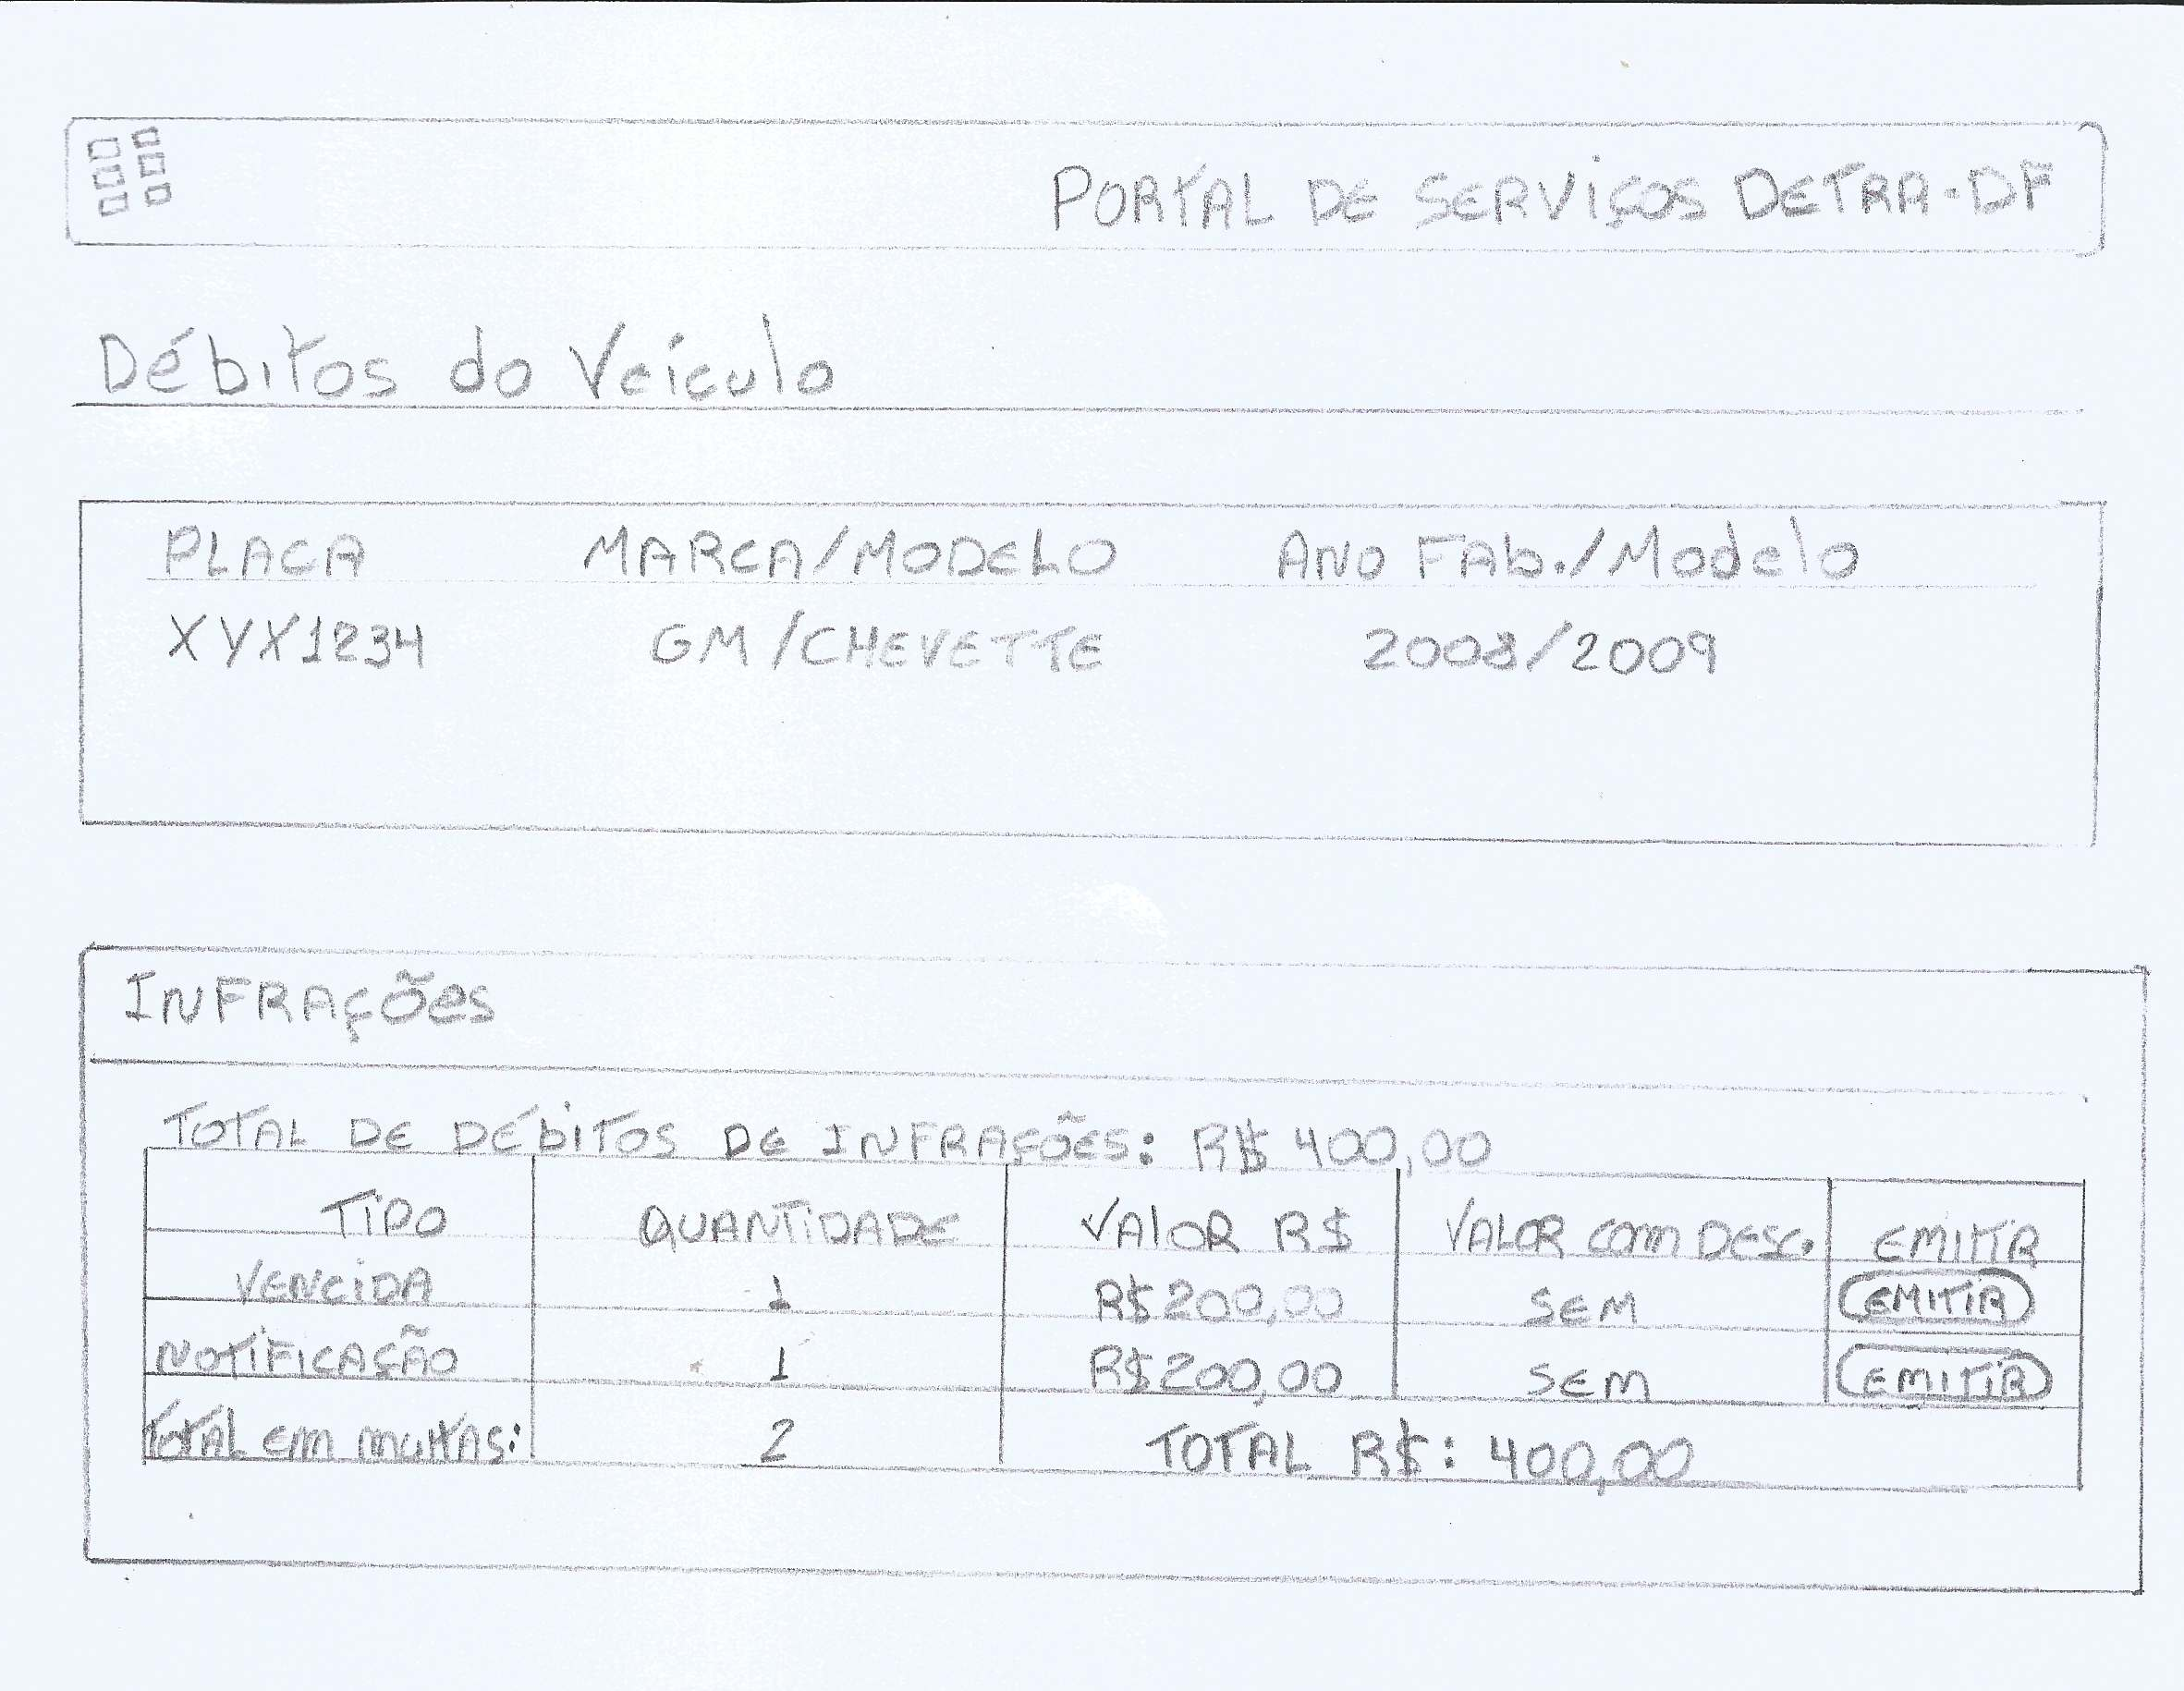 PORTAL DE SERViÇOS DETRA-DF
Débitos do Veículo
PLACA MARCA/MODELO ANO FAb./Modelo
XYX1234 GM/CHEVETTE 2008/2009
INFRAÇÕES
TOTAL DE DÉbiTOS DE INFRAÇÕES: R$ 400,00
TiPO QUANTiDADE VAlOR R$ VALOR com DESC. EMITIR
VENCiDA 1 R$200,00 SEM EMITIR
NOTiFICAÇÃO 1 R$200,00 SEM EMITIR
TOTAL em multAS: 2 TOTAL R$: 400,00